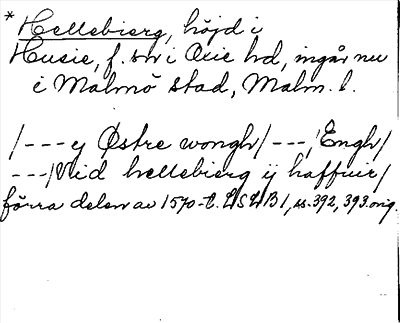 * Hellebierg, höjd i
Husie, f. sn i Oxie hd, ingår nu
i Malmö stad, Malm. l.
/--- y Østre wongh/ ---/Engh/
---/Wid hellebierg ij haffuer/
förra delen av 1570-t. LSLB 1, ss. 392, 393. orig.